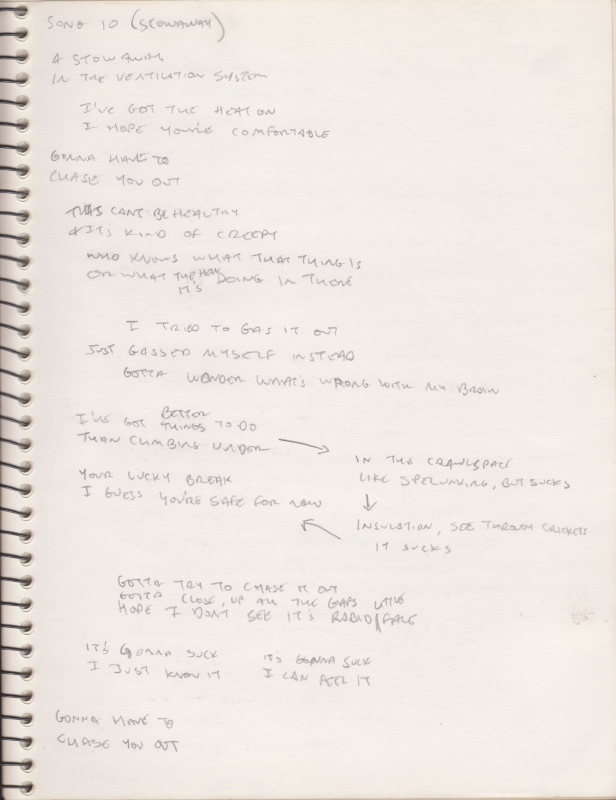 SONG 10 (STOWAWAY)
A STOWAWAY
IN THE VENTILATION SYSTEM
I'VE GOT THE HEAT ON
I HOPE YOU'RE COMFORTABLE
GONNA HAVE TO
CHASE YOU OUT
THIS CAN'T BE HEALTHY
& IT'S KIND OF CREEPY
WHO KNOWS WHAT THAT THING IS
OR WHAT THE HELL IT'S DOING IN THERE
I TRIED TO GAS IT OUT
JUST GASSED MYSELF INSTEAD
GOTTA WONDER WHAT'S WRONG WITH MY BRAIN
I'VE GOT BETTER THINGS TO DO
THAN CLIMBING UNDER
IN THE CRAWLSPACE
LIKE SPELUNKING, BUT SUCKS
INSULATION, SEE THROUGH CRICKETS
IT SUCKS
YOUR LUCKY BREAK
I GUESS YOU'RE SAFE FOR NOW
GOTTA TRY TO CHASE IT OUT
GOTTA CLOSE UP ALL THE GAPS
HOPE I DON'T SEE IT'S RABID LITTLE FACE
IT'S GONNA SUCK
I JUST KNOW IT
IT'S GONNA SUCK
I CAN FEEL IT
GONNA HAVE TO
CHASE YOU OUT